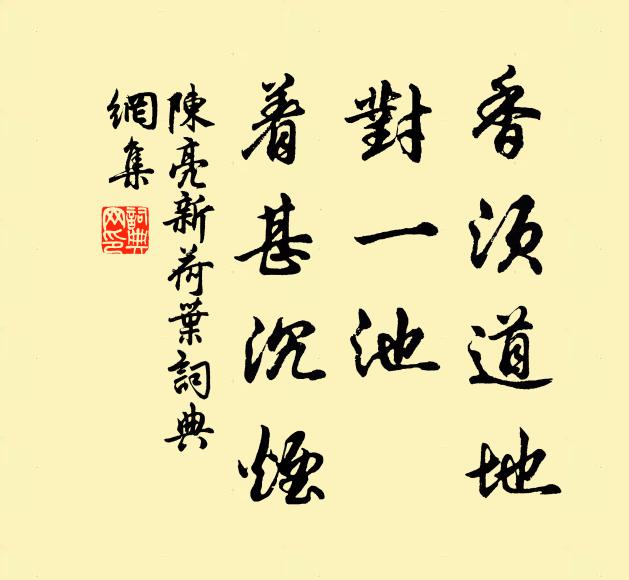 香須道地
對一池
着甚沉煙
陳亮新荷葉詞典
網集
詞典網印